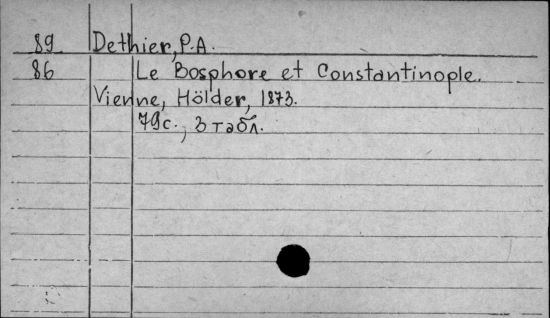 89 Dethier, P.A.
86 Le Bosphore et Constantinople.
Vienne, Hölder, 1873.
79с., 3 табл.